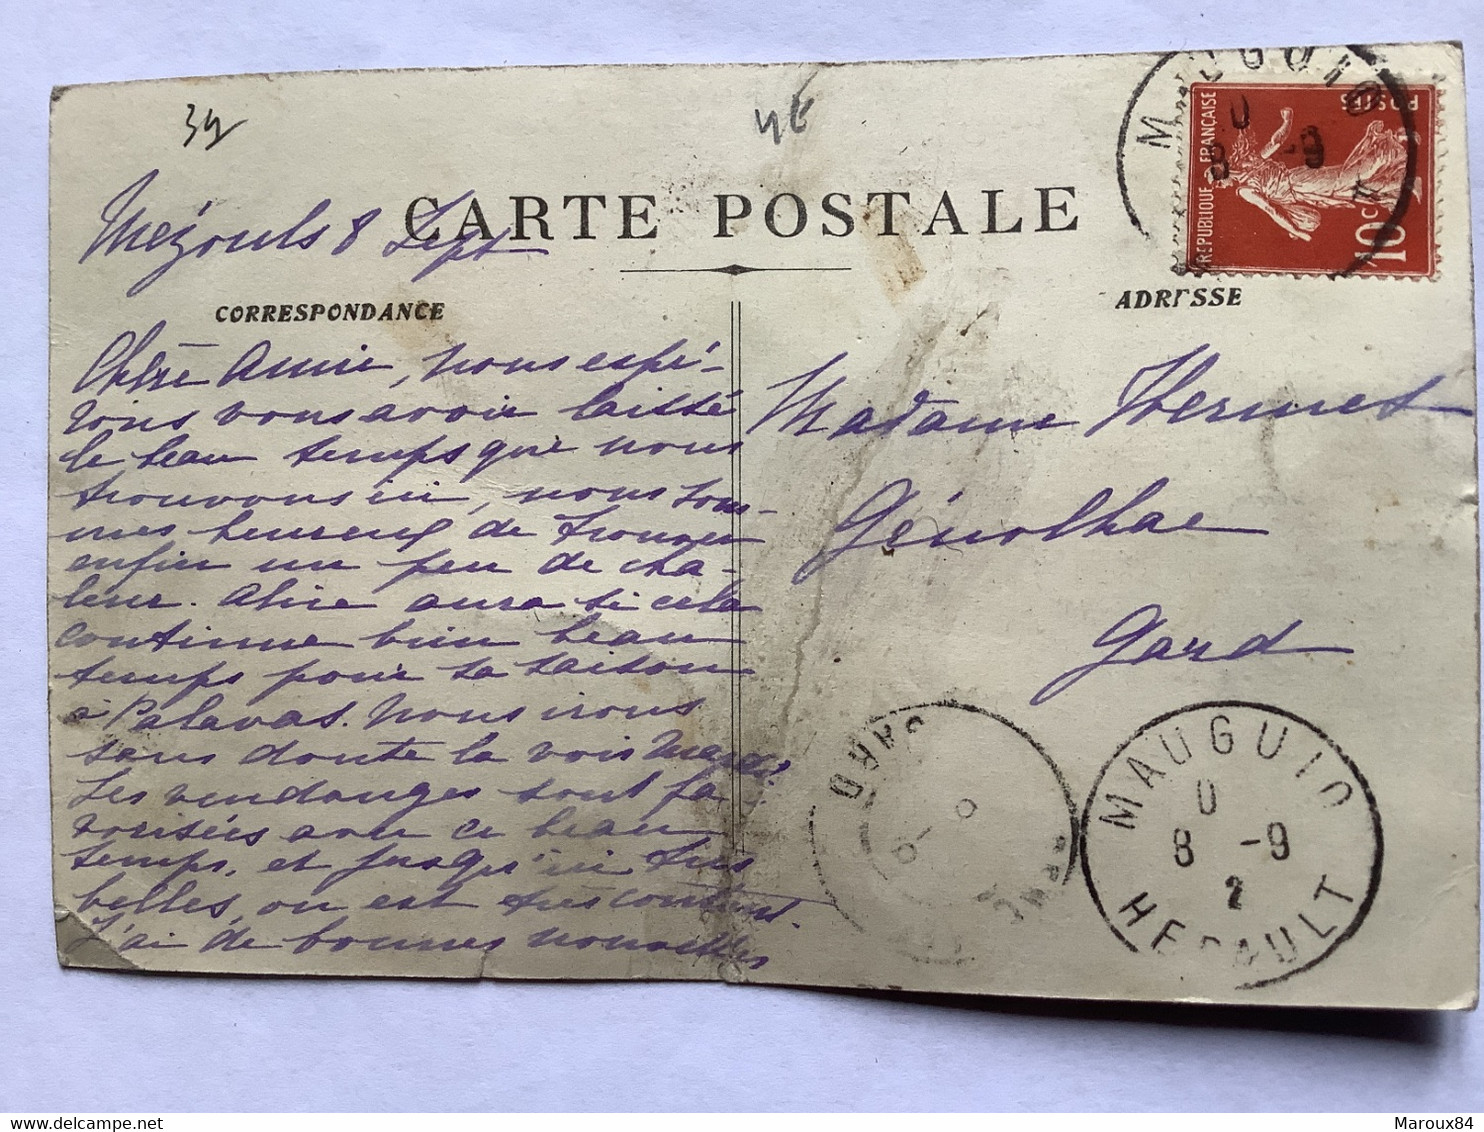 39
CARTE POSTALE
Mézouls 8 Sept
CORRESPONDANCE
Chère Amie, nous espé-
rons vous avoir laissé
le beau temps que nous
trouvons ici, nous som-
mes heureux de trouver
enfin un peu de cha-
leur. Alice aura si cela
continue bien beau
temps pour sa saison
à Palavas. Nous irons
sans doute la voir Mardi
Les vendanges sont fa-
vorisées avec ce beau
temps, et jusqu'ici très
belles, on est très content.
J'ai de bonnes nouvelles
ADRESSE
Madame Hermet
Génolhac
Gard
RÉPUBLIQUE FRANÇAISE
POSTES
10c
MAUGUIO
8 -9
MAUGUIO
8 -9
2
HERAULT
GARD
Maroux84